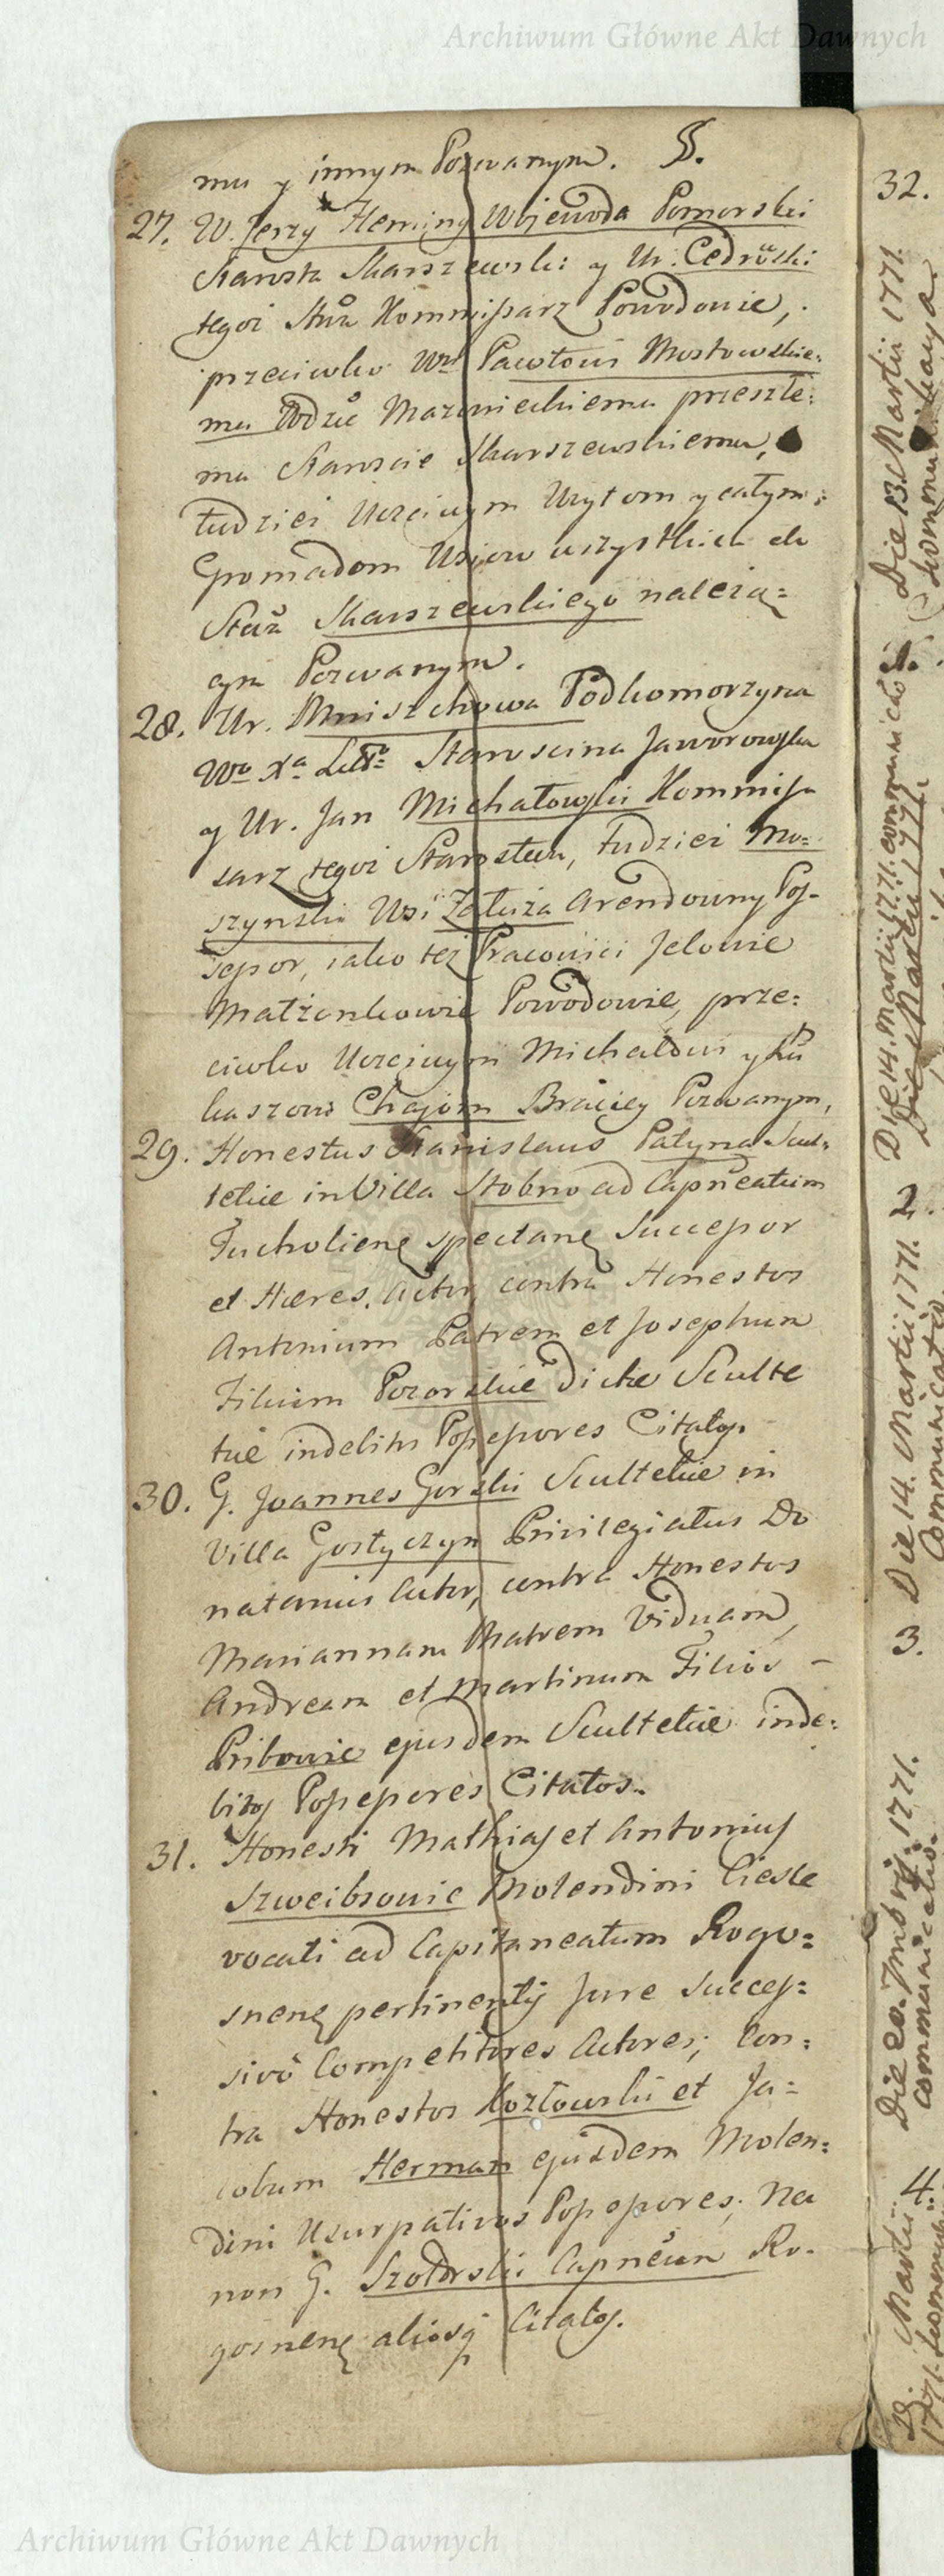 Archiwum Główne Akt Dawnych
mu y innym Pozwanym. §.
27. W. Jerzy Fleming Wojewoda Pomorski
Starosta Skarszewski y Ur. Cedrowski
tegoż Stwa Kommissarz Powodowie,
przeciwko Wmu Pawłowi Mostowskie:
mu Wdzie Mazowieckiemu przeszłe:
mu Staroście Skarszewskiemu,
tudzież Uczciwym Wytom y całym:
Gromadom Wsiow wszystkich do
Stwa Skarszewskiego należą=
cym Pozwanym.
28. Ur. Mniszchowa Podkomorzyna
Wo Xa Litt: Staroscina Jaworowska
y Ur. Jan Michałowski Kommis
sarz tegoż Starostwa, tudzież Mo=
szynski Wsi Załuża Arendowny Pos-
sessor, iako też Pracowici Jelowie
Małżonkowie Powodowie, prze:
ciwko Uczciwym Michałowi y Łu
kaszowi Chajom Braciey Pozwanym,
29. Honestus Stanislaus Patyna Scul-
tetiæ in Villa Stobno ad Capneatum
Tucholienę spectanę Successor
et Hæres, Actor contra Honestos
Antonium Patrem et Josephum
Filium Pozorskie dictæ Sculte
tiæ indebitos Possessores Citatos.
30. G. Joannes Gorski Scultetiæ in
Villa Gostyczyn Privilegiatus Do
natarius Actor, contra Honestos
Mariannam Matrem Viduam,
Andream et Martinum Filios -
Pribowie ejusdem Scultetiæ inde:
bitos Possessores Citatos.
31. Honesti Mathias et Antonius
Szweibsowie Molendini Ciesle
vocati ad Capitaneatum Rogo=
snenę pertinentis Jure succes=
sivo Competitores Actores; Con:
tra Honestos Kozłowski et Ja=
cobum Herman ejusdem Molen:
dini Usurpativos Possessores, Nec
non G. Szołdrski Capneum Ro-
gosnenę aliosq Citatos.
32.
Die 13. Martii 1771.
Die 14. Martii 1771. communicatio
2.
Die 14. Martii 1771.
Communicatio
3.
Die 20. 7mbris 1771.
communicatio.
4.
Archiwum Główne Akt Dawnych